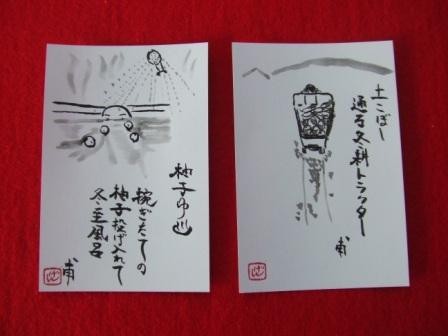 柚子ゆ
捥ぎたての
柚子投げ入れて
冬至風呂
甫
土こぼし
通る冬耕トラクター
甫